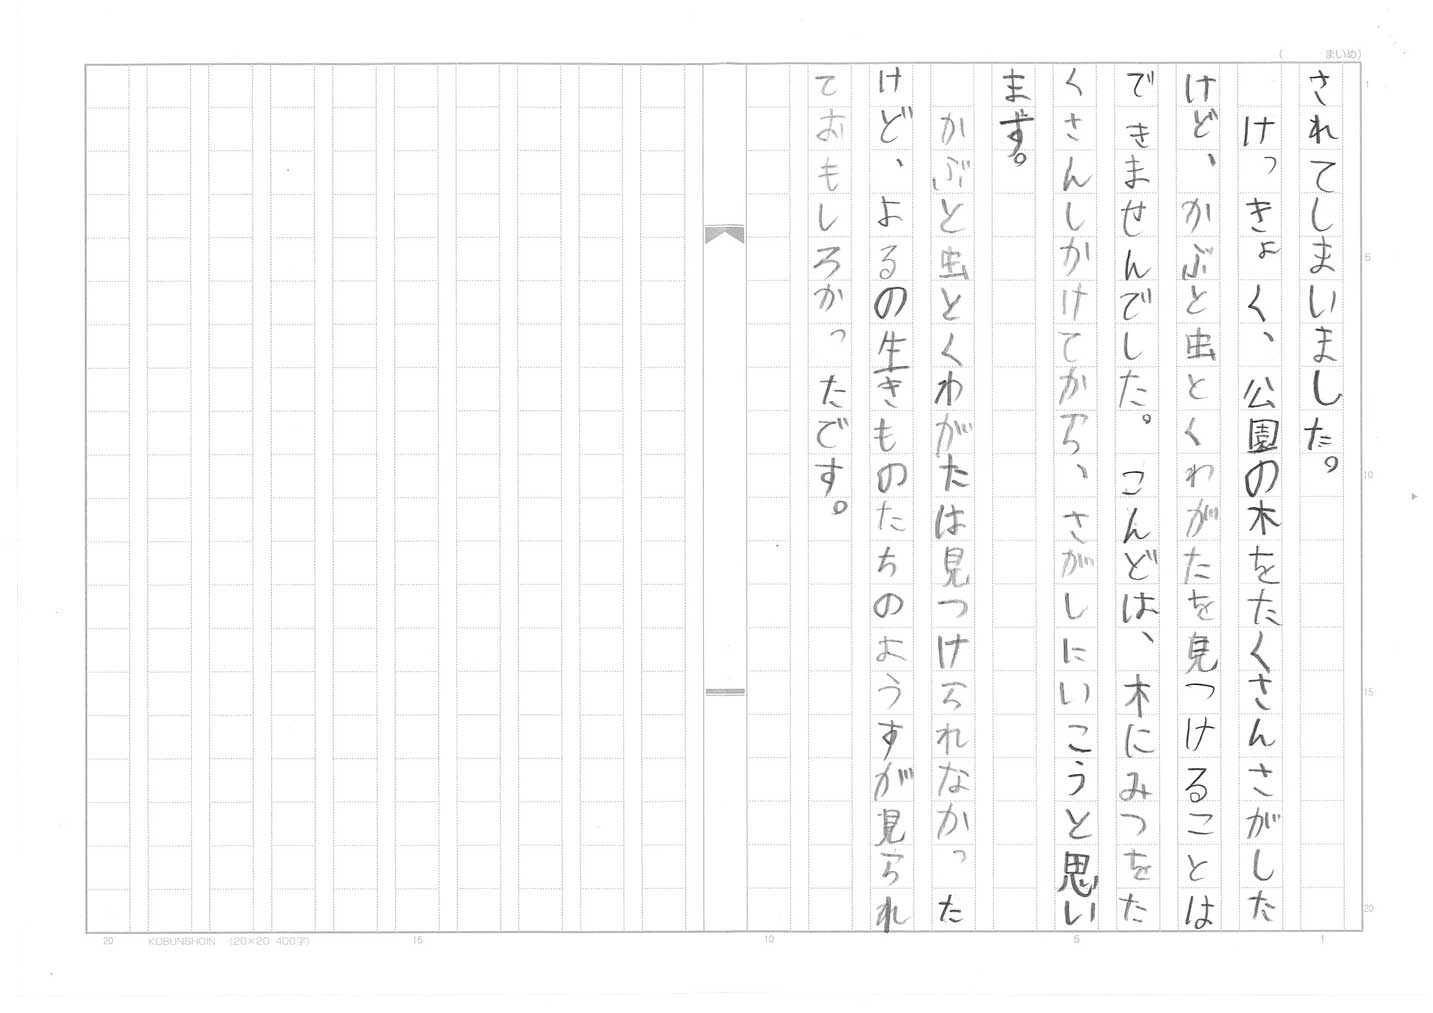 されてしまいました。
けっきょく、公園の木をたくさんさがした
けど、かぶと虫とくわがたを見つけることは
できませんでした。こんどは、木にみつをた
くさんしかけてから、さがしにいこうと思い
ます。
かぶと虫とくわがたは見つけられなかった
けど、よるの生きものたちのようすが見られ
ておもしろかったです。
(　　まいめ)
1
5
10
15
20
1
5
10
15
KOBUNSHOIN (20×20 400字)
20